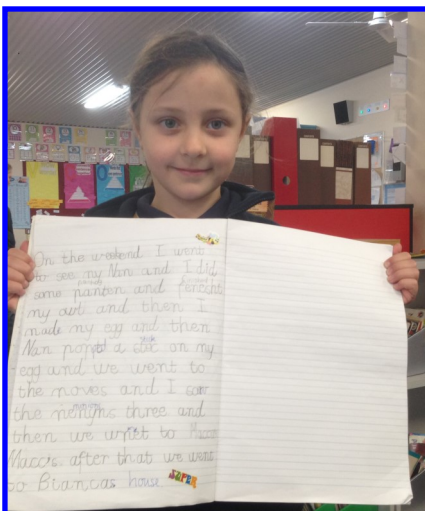 On the weekend I went
to see my Nan and I did
some panten and
my owl and then I
made my egg and then
Nan a on my
egg and we went to
the moves and I sor
the three and
then we wnet to Maccs
Macc's. after that we went
to Biancas house
SUPER